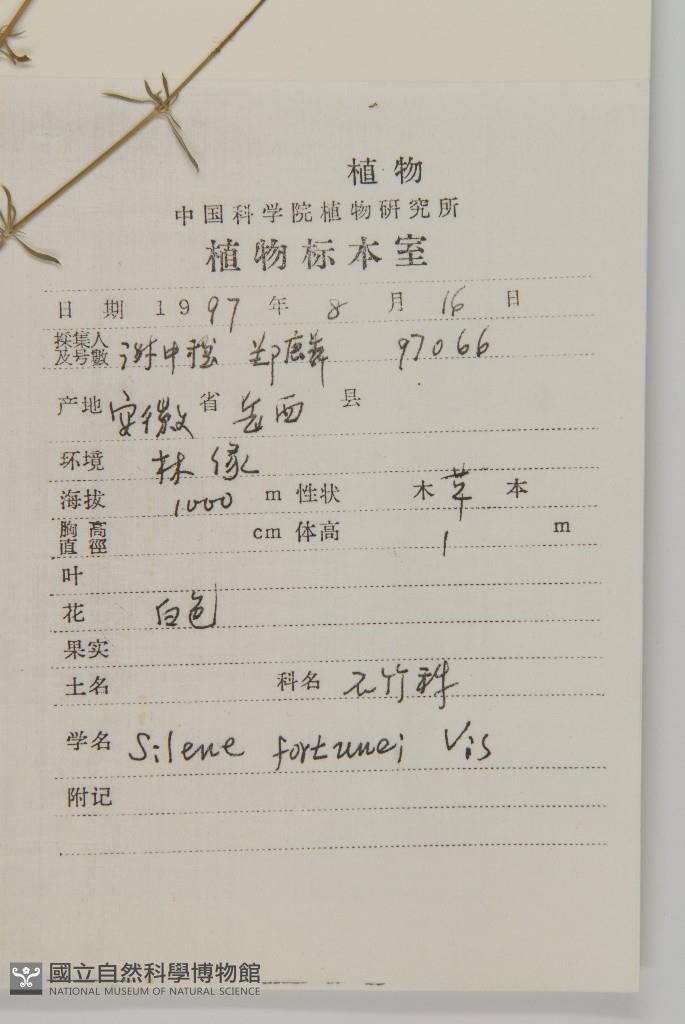 植物
中国科学院植物研究所
植物标本室
日 期 1997 年 8 月 16 日
採集人及号數 谢中稳 97066
产地 安徽 省 岳西 县
环境 林缘
海拔 1000 m 性状 木 草 本
胸高直徑 cm 体高 1 m
叶
花 白色
果实
土名 科名 石竹科
学名 Silene fortunei Vis
附记
國立自然科學博物館
NATIONAL MUSEUM OF NATURAL SCIENCE